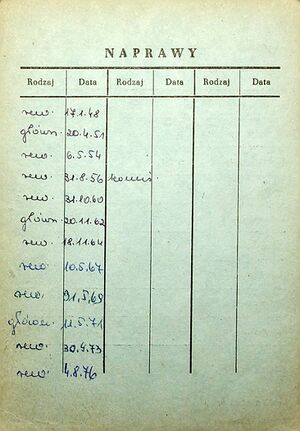 NAPRAWY
Rodzaj Data Rodzaj Data Rodzaj Data
rew. 17.1.48
główn. 20.4.51
rew. 6.5.54
rew. 31.8.56
rew. 31.10.60
główn. 20.11.62
rew. 18.11.64
rew. 10.5.67
rew. 21.5.69
główn. 11.5.71
rew. 30.4.73
rew. 4.8.76